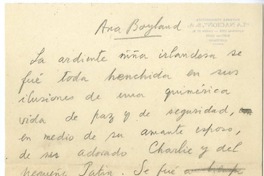 Ana Boyland
La ardiente niña irlandesa se
fué toda henchida en sus
ilusiones de una quimérica
vida de paz y de seguridad,
en medio de su amante esposo,
de su adorado Charlie y del
pequeño Patri. Se fué